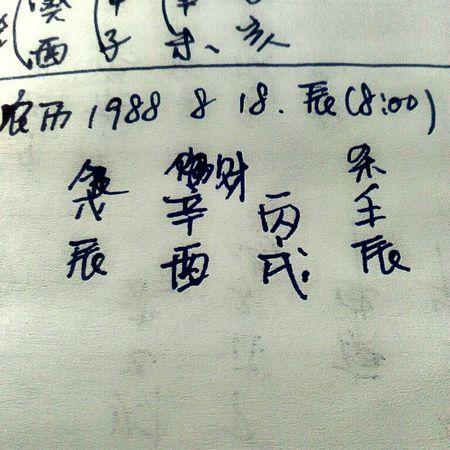 癸
酉 子 未、
农历 1988 8 18. 辰(8:00)
食 偏财 杀
戊 辛 丙 壬
辰 酉 戌 辰